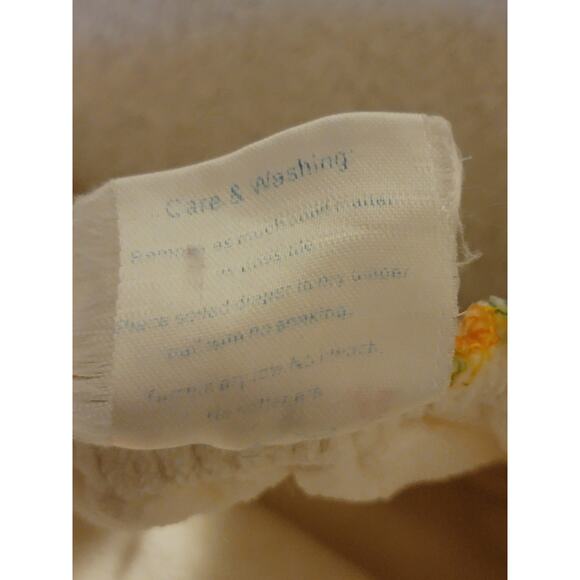 Care & Washing
Remove as much solid matter
as possible.
Place soiled diaper in dry diaper
pail with no soaking.
Tumble dry low. No bleach.
No softeners